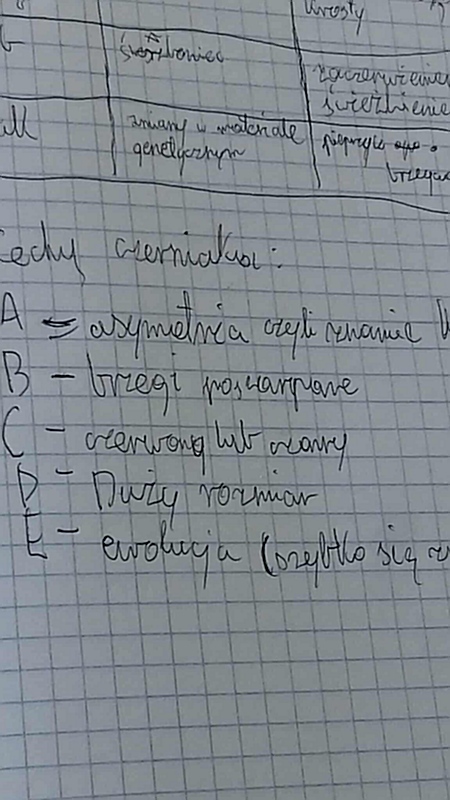 wrosty
świerzbowiec
zaczerwienie
świerzbienie
zmiany w materiale
genetycznym
brzega
Cechy czerniaka:
A = asymetria czyli znamie
B - brzegi poszarpane
C - czerwony lub czarny
D - Duży rozmiar
E - ewolucja (szybko się z